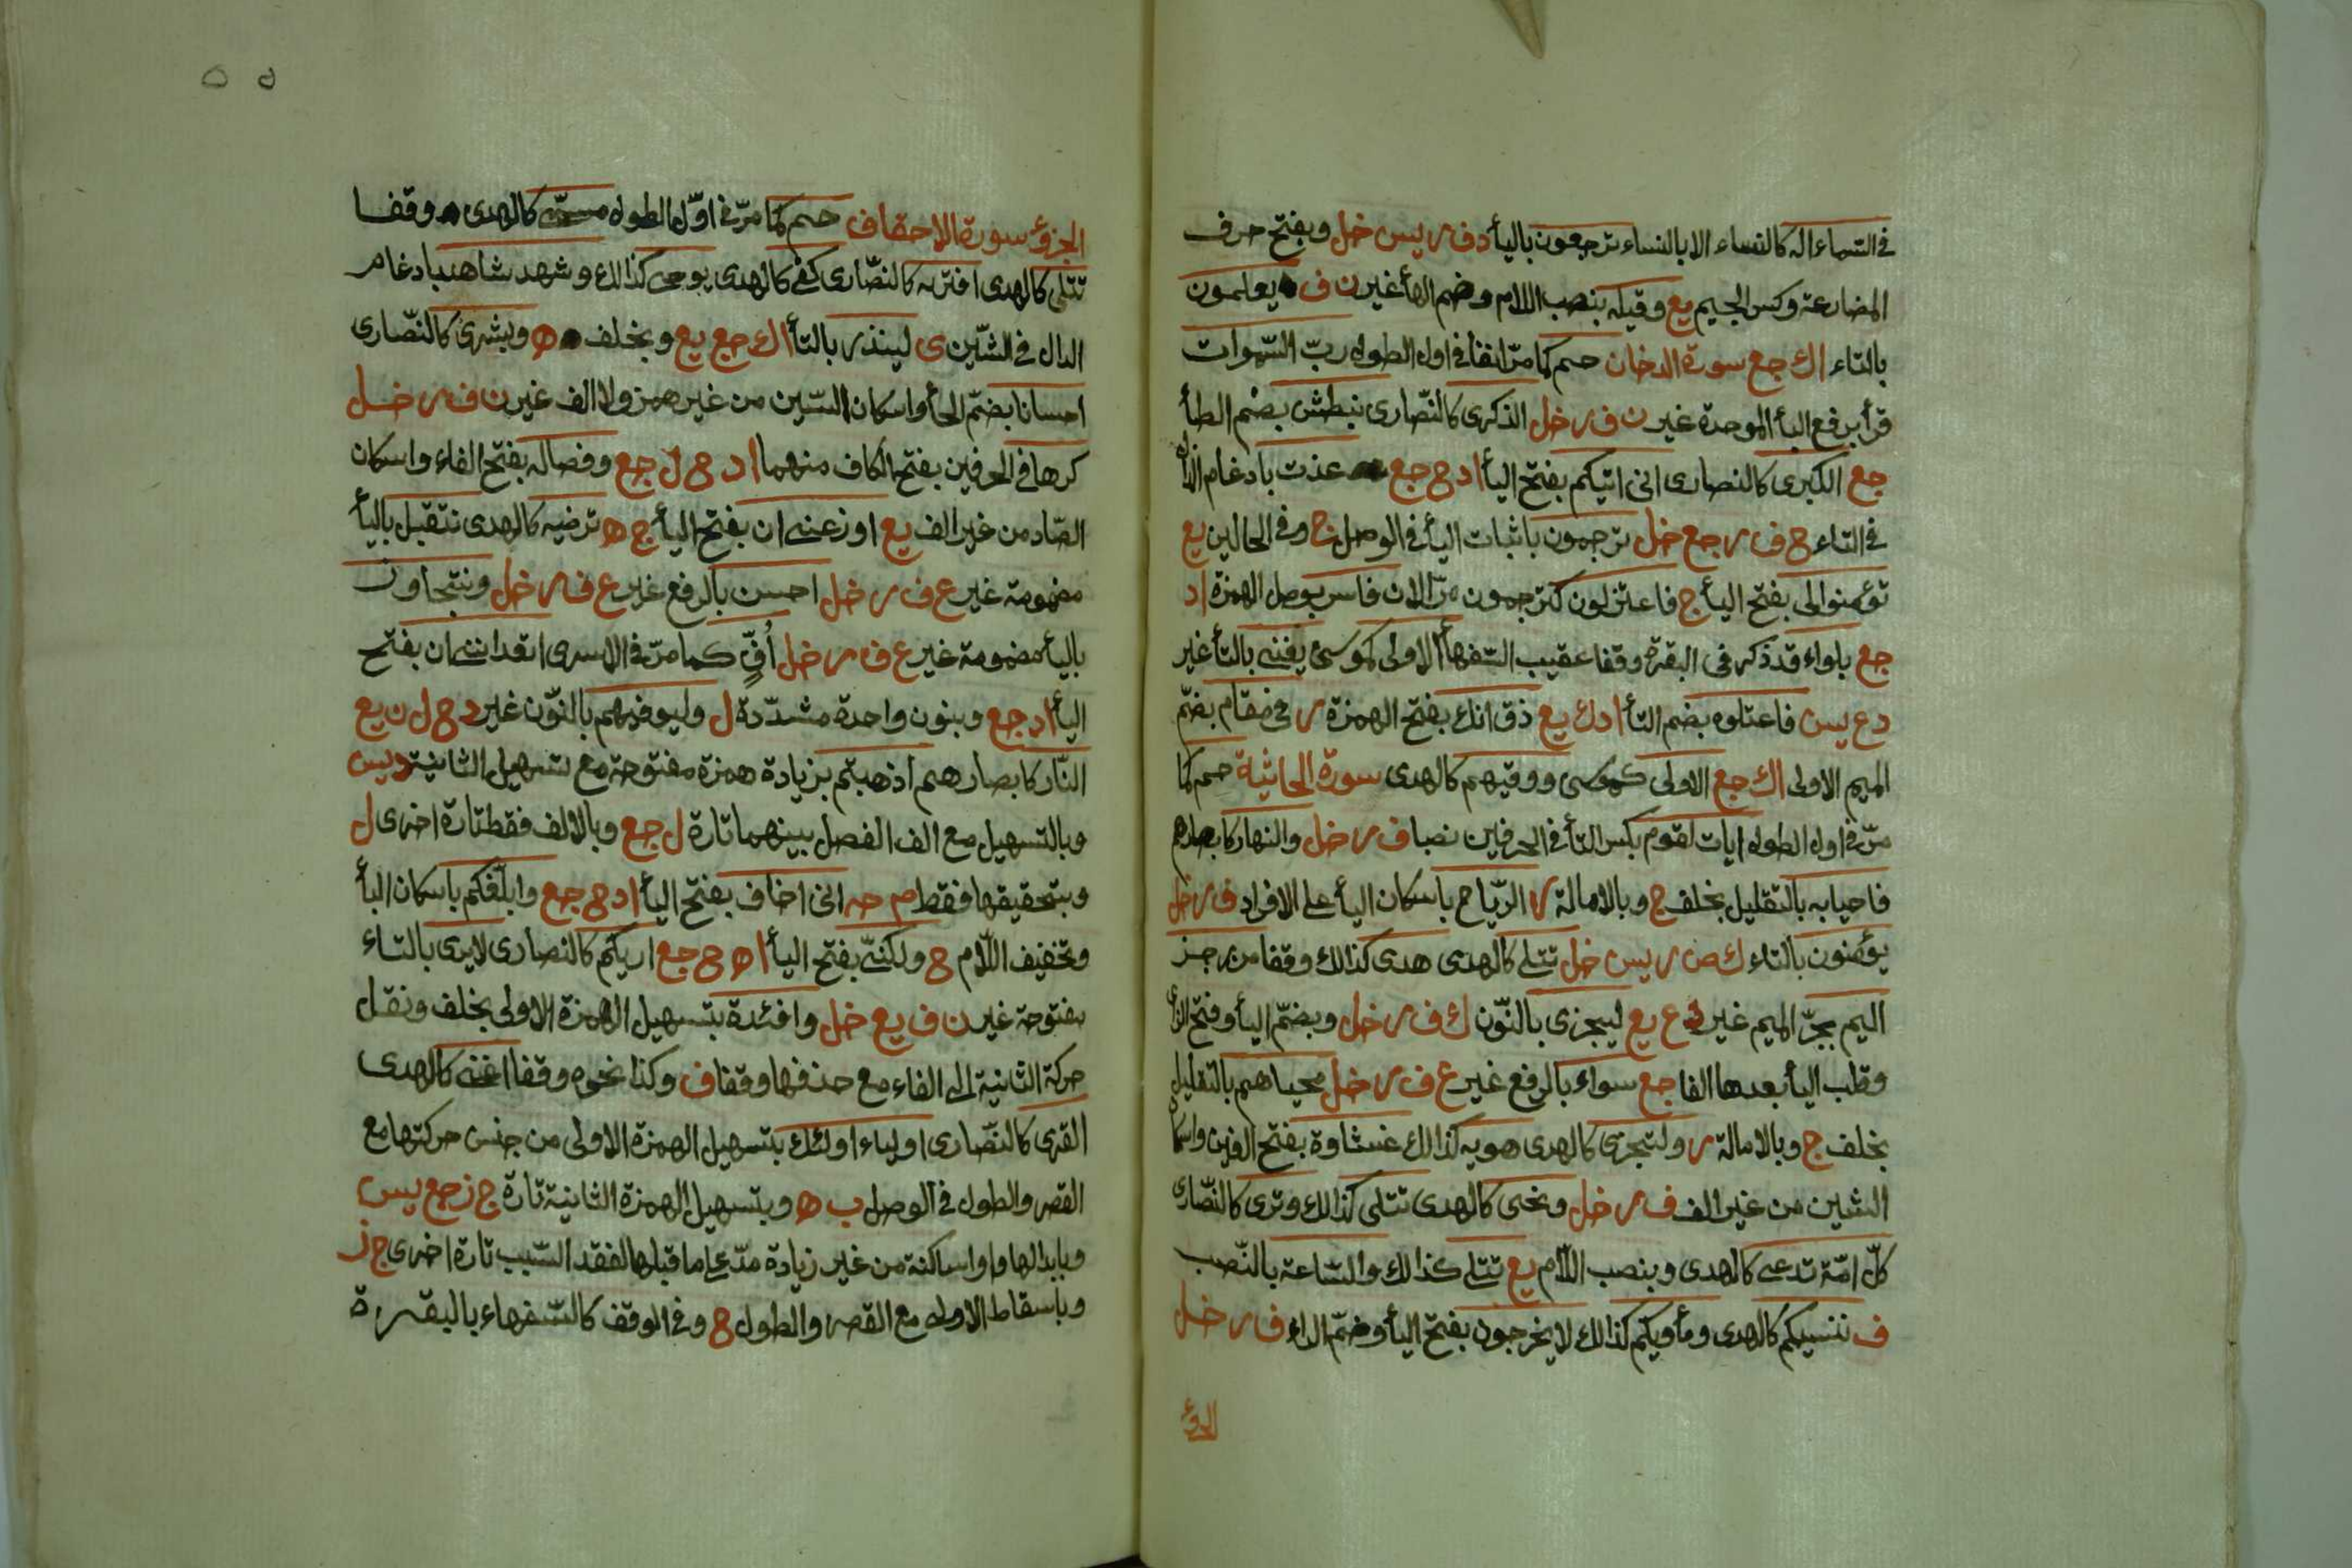 في السماء اله كالنساء الا بالنساء ترجعون باليأ د ف ر يس خل وبفتح حرف
المضارعة وكسر الجيم يع وقيله بنصب اللام وضم الهأ غير ن ف يعلمون
بالتاء ا ك جع سورة الدخان حم كما مرّ انفا في اول الطول ربّ السّموات
قرأ برفع البأ الموحدة غير ن ف ر خل الذكرى كالنّصارى نبطش بضم الطأ
جع الكبرى كالنصارى انى اتيكم بفتح اليأ ا د ح جع عذت بادغام الذال
في التاء ح ف ر جع خل ترجمون باثبات اليأ في الوصل ج وفي الحالين يع
تؤمنوا لى بفتح اليأ ج فاعتزلون كترجمون مرّ الان فاسر بوصل الهمزة ا د
جع بلواء قد ذكر في البقرة وقفا عقيب السّفهأ الاولى كموسى يغنى بالتأ غير
د ع يس فاعتلوه بضم التأ ا د ك يع ذق انك بفتح الهمزة ر في مقام بضمّ
الميم الاولى ا ك جع الاولى كموسى ووقيهم كالهدى سورة الجاثية حم كما
مرّ في اول الطول ايات لقوم بكسر التأ في الحرفين نصبا ف ر خل والنهار كابصارهم
فاحيا به بالتقليل بخلف ج وبالامالة ر الرّياح باسكان اليأ على الافراد ف ر خل
يؤمنون بالتاء ك ص ر يس خل تتلى كالهدى هدى كذلك وقفا من رجز
اليم بجرّ الميم غير د ع يع ليجزى بالنّون ك ف ر خل وبضمّ اليأ وفتح الزاى
وقلب اليأ بعدها الفا جع سواء بالرفع غير ع ف ر خل محياهم بالتقليل
بخلف ج وبالامالة ر ولتجزى كالهدى هويه كذلك غشاوة بفتح الغين واسكان
الشين من غير الف ف ر خل ونحيى كالهدى تتلى كذلك وترى كالنّصارى
كلّ امّة تدعى كالهدى وبنصب اللّام يع تتلى كذلك والسّاعة بالنّصب
ف ننسيكم كالهدى ومأويكم كذلك لا يخرجون بفتح اليأ وضمّ الراء ف ر خل
الجزؤ
٥٥
الجزؤ سورة الاحقاف حم كما مرّ في اوّل الطول مسمّى كالهدى وقفا
تتلى كالهدى افتريه كالنصّارى كفى كالهدى يوحى كذلك وشهد شاهد بادغام
الدال في الشّين ى لينذر بالتأ ا ك جع يع وبخلف ه وبشرى كالنّصارى
احسانا بضمّ الحأ واسكان السّين من غير همز ولا الف غير ن ف ر خل
كرها في الحرفين بفتح الكاف منهما ا د ح ل جع وفصاله بفتح الفاء واسكان
الصّاد من غير الف يع اوزعنى ان بفتح اليأ ج ه ترضيه كالهدى نتقبل باليأ
مضمومة غير ع ف ر خل احسن بالرفع غير ع ف ر خل ونتجاوز
باليأ مضمومة غير ع ف ر خل أُفٍّ كما مرّ في الاسرى اتعداننى ان بفتح
اليأ ا د جع وبنون واحدة مشدّدة ل وليوفيهم بالنّون غير د ح ل ن يع
النّار كابصارهم أذهبتم بزيادة همزة مفتوحة مع تسهيل الثانية د يس
وبالتسهيل مع الف الفصل بينهما تارة ل جع وبالالف فقط تارة اخرى ل
وبتحقيقها فقط م حه انى اخاف بفتح اليأ ا د ح جع وابلّغكم باسكان البأ
وتخفيف اللّام ح ولكنّى بفتح اليأ ا ه ح جع اريكم كالنصارى لا يرى بالتاء
مفتوحة غير ن ف يع خل وافئدة بتسهيل الهمزة الاولى بخلف ونقل
حركة الثانية الى الفاء مع حذفها وقفا ف وكذا نحوه وقفا اغنى كالهدى
القرى كالنّصارى اولياء اولئك بتسهيل الهمزة الاولى من جنس حركتها مع
القصر والطول في الوصل ب ه وبتسهيل الهمزة الثانية تارة ج ز جع يس
وبابدالها واوا ساكنة من غير زيادة مدّ على ما قبلها لفقد السّبب تارة اخرى ج ز
وباسقاط الاولى مع القصر والطول ح وفي الوقف كالسّفهاء بالبقرة